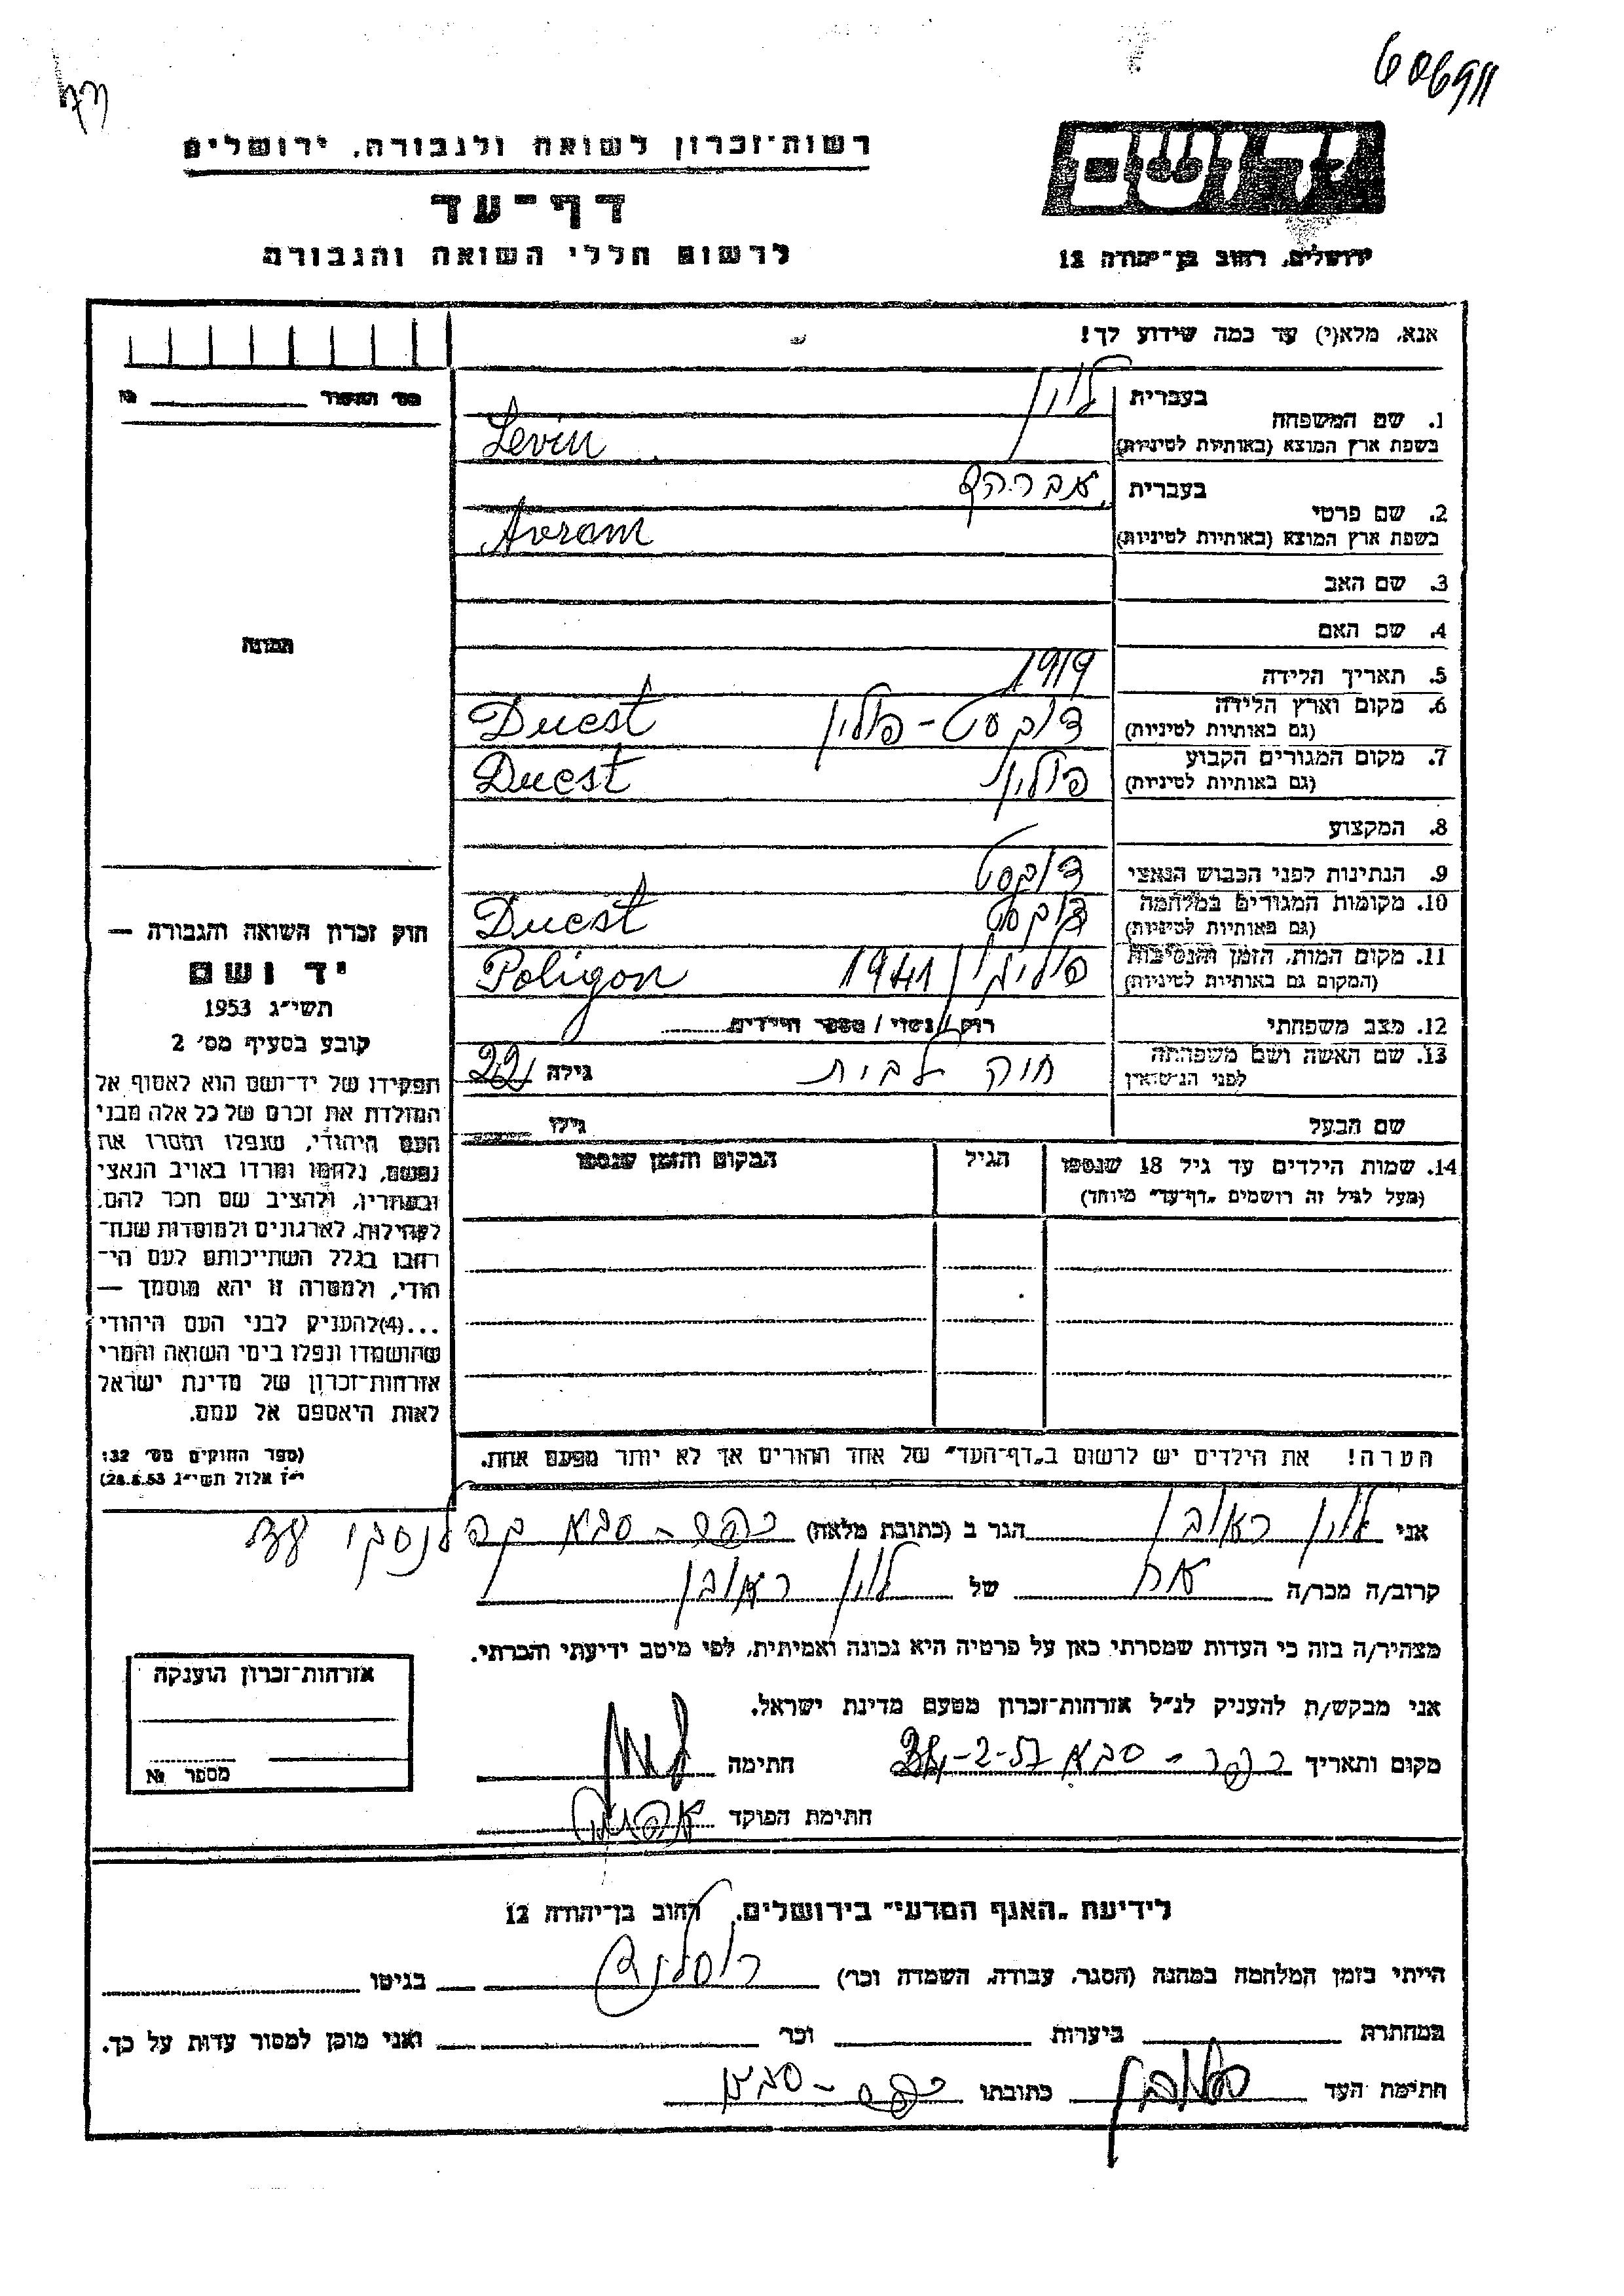 606911
רשות־זכרון לשואה ולגבורה, ירושלים
דף־עד
לרשום חללי השואה והגבורה
ידושם
ירושלים, רחוב בן־יהודה 12
אנא, מלא(י) עד כמה שידוע לך!
1. שם המשפחה
בעברית לוין
בשפת ארץ המוצא (באותיות לטיניות) Levin
2. שם פרטי
בעברית אברהם
בשפת ארץ המוצא (באותיות לטיניות) Avram
3. שם האב
4. שם האם
5. תאריך הלידה 1919
6. מקום וארץ הלידה
(גם באותיות לטיניות) פולין Ducst
7. מקום המגורים הקבוע
(גם באותיות לטיניות) פולין Ducst
8. המקצוע
9. הנתינות לפני הכבוש הנאצי
10. מקומות המגורים במלחמה
(גם באותיות לטיניות) Ducst
11. מקום המות, הזמן והנסיבות
(המקום גם באותיות לטיניות) 1941 Poligon
12. מצב משפחתי רוק/נשוי/מספר הילדים
13. שם האשה ושם משפחתה
לפני הנישואין חוה גילה 22
שם הבעל גילו
14. שמות הילדים עד גיל 18 שנספו
(מעל לגיל זה רושמים "דף־עד" מיוחד)
הגיל
המקום והזמן שנספו
הערה! את הילדים יש לרשום ב"דף־העד" של אחד ההורים אך לא יותר מפעם אחת.
מס' התיק
התמונה
חוק זכרון השואה והגבורה —
יד ושם
תשי"ג 1953
קובע בסעיף מס' 2
תפקידו של יד־ושם הוא לאסוף אל
המולדת את זכרם של כל אלה מבני
העם היהודי, שנפלו ומסרו את
נפשם, נלחמו ומרדו באויב הנאצי
ובעוזריו, ולהציב שם וזכר להם,
לקהילות, לארגונים ולמוסדות שנח־
רבו בגלל השתייכותם לעם הי־
הודי, ולמטרה זו יהא מוסמך —
...(4)להעניק לבני העם היהודי
שהושמדו ונפלו בימי השואה והמרי
אזרחות־זכרון של מדינת ישראל
לאות היאספם אל עמם.
(ספר החוקים מס' 132
י"ז אלול תשי"ג 28.8.53)
אני לוין ראובן הגר ב (כתובת מלאה) כפר-סבא
קרוב/ה מכר/ה אח של לוין ראובן
מצהיר/ה בזה כי העדות שמסרתי כאן על פרטיה היא נכונה ואמיתית, לפי מיטב ידיעתי והכרתי.
אני מבקש/ת להעניק לנ"ל אזרחות־זכרון מטעם מדינת ישראל.
מקום ותאריך כפר-סבא חתימה
חתימת הפוקד
אזרחות־זכרון הוענקה
מספר №
לידיעת "האגף המדעי" בירושלים, רחוב בן־יהודה 12
הייתי בזמן המלחמה במחנה (הסגר, עבודה, השמדה וכו') בגיטו
במחתרת ביערות וכו' ואני מוכן למסור עדות על כך.
חתימת העד כתובתו כפר-סבא